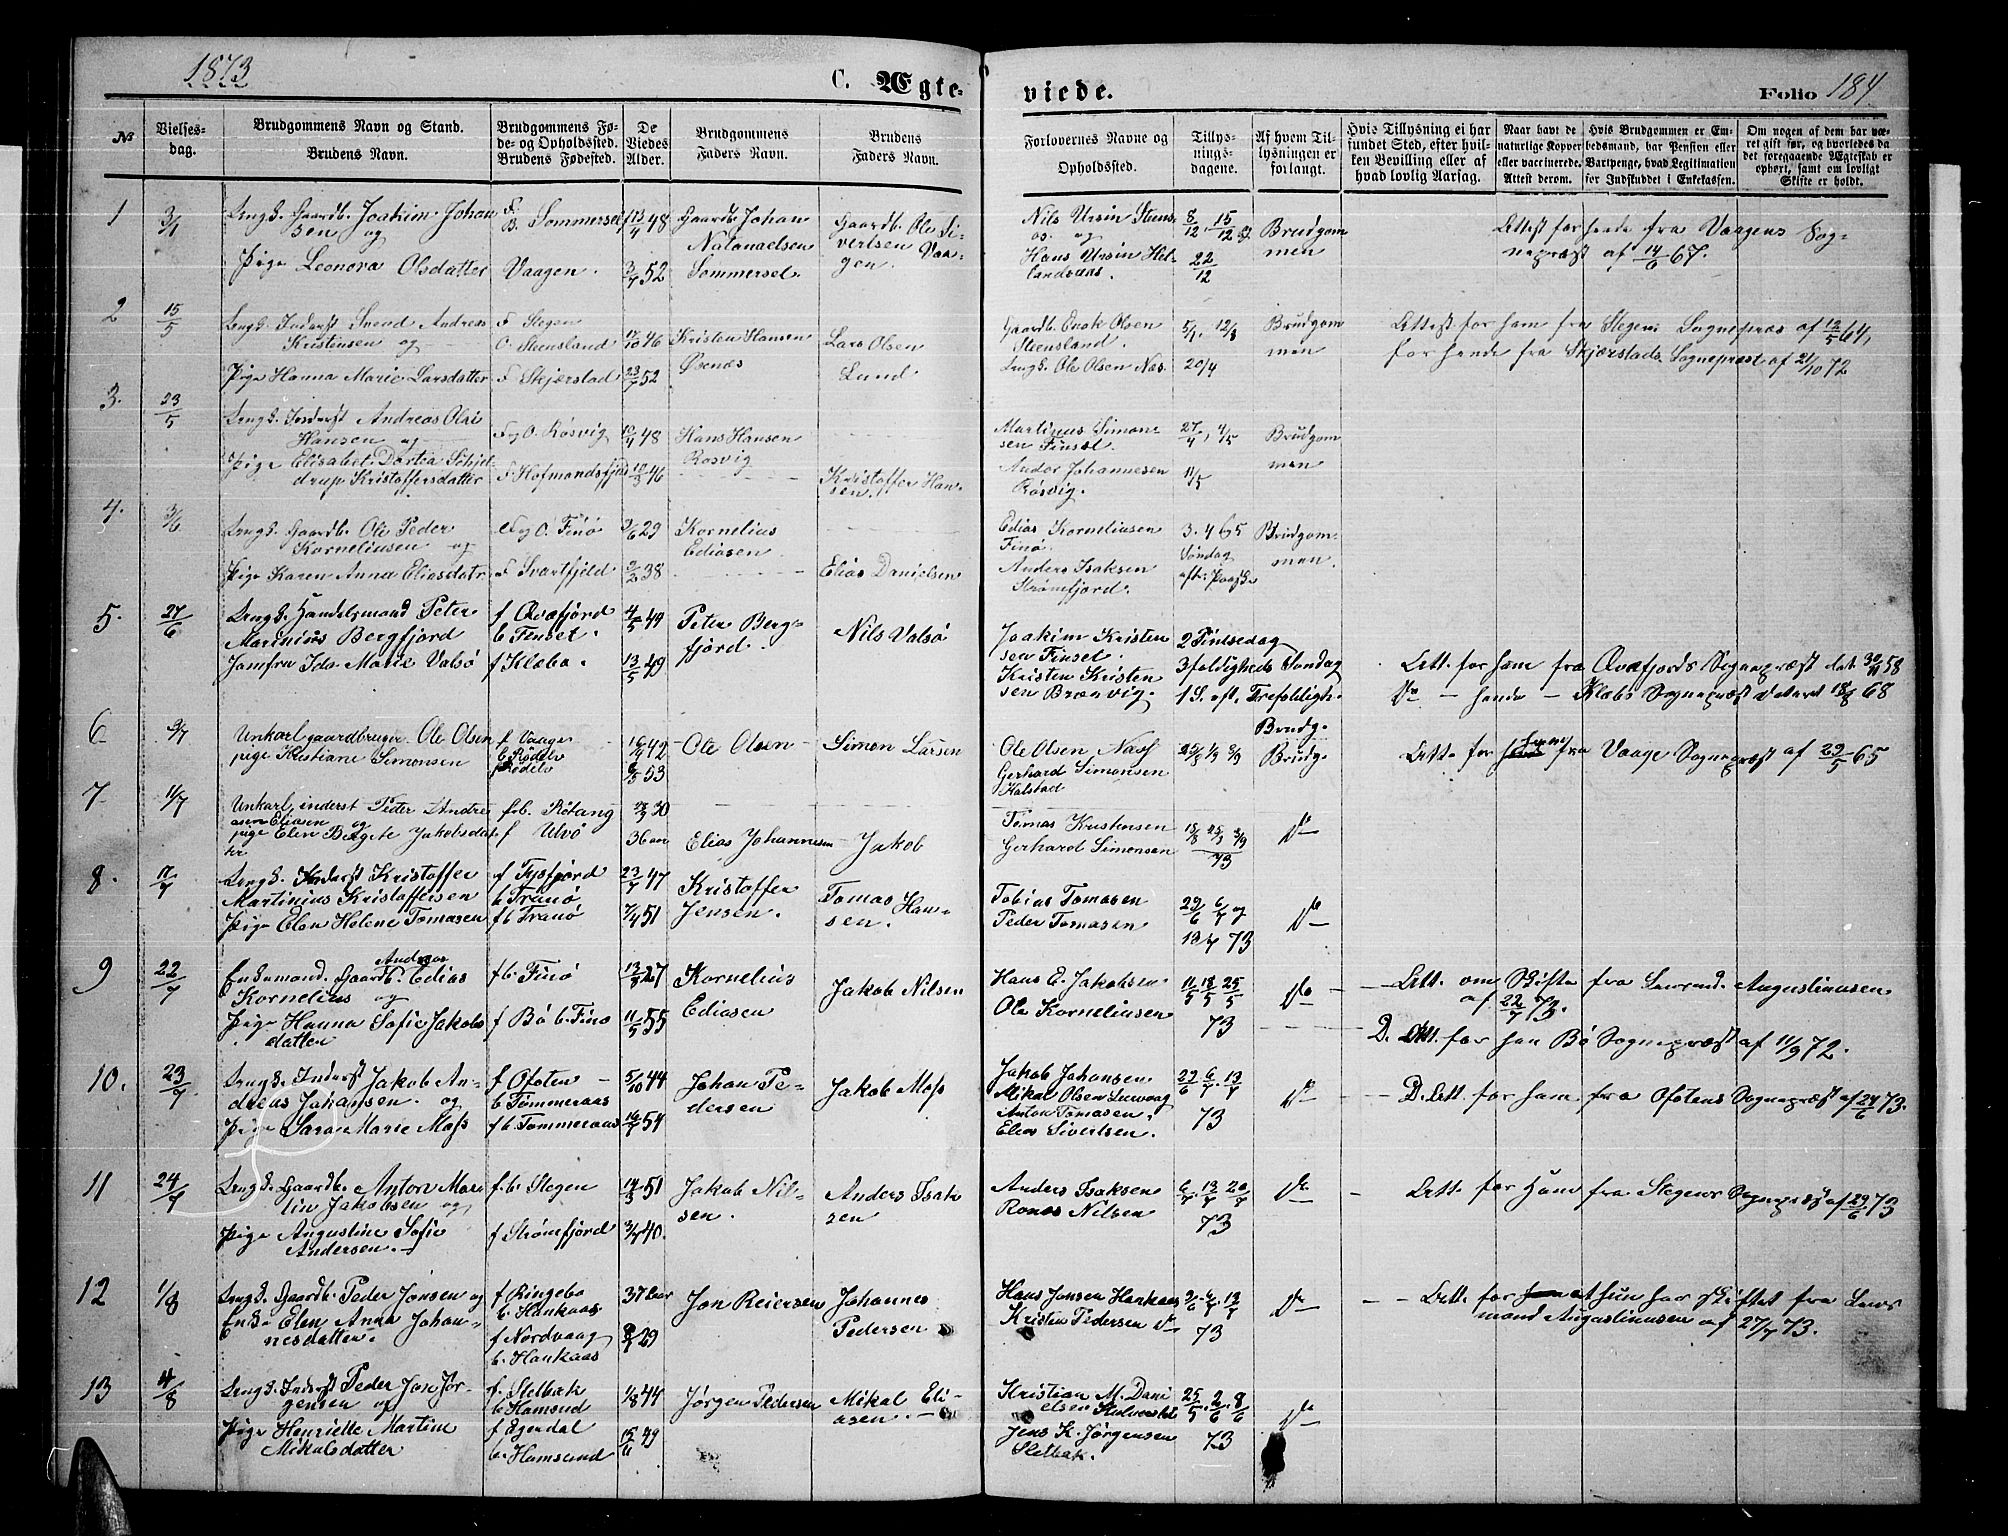 1873
C. Ægte-
viede.
Folio 184
№
Vielses-
dag.
Brudgommens Navn og Stand.
Brudens Navn.
Brudgommens Fø-
de- og Opholdssted.
Brudens Fødested.
De
Viedes
Alder.
Brudgommens
Faders Navn.
Brudens
Faders Navn.
Forlovernes Navne og
Opholdssted.
Tillys-
nings-
dagene.
Af hvem Til-
lysningen er
forlangt.
Hvis Tillysning ei har
fundet Sted, efter hvil-
ken Bevilling eller af
hvad lovlig Aarsag.
Naar havt de
naturlige Kopper
eller vaccinerede.
Attest derom.
Hvis Brudgommen er Em-
bedsmand, har Pension eller
Vartpenge, hvad Legitimation
for Indskuddet i Enkekassen.
Om nogen af dem har væ-
ret gift før, og hvorledes da
det foregaaende Ægteskab er
ophørt, samt om lovligt
Skifte er holdt.
1 3/1 Ungk. Gaardb. Joakim Johan
sen og
Pige Leonora Olsdatter
F.
B. Sommersel
Vaagen.
13/4 48
3/7 52
Gaardb. Johan
Natanaelsen
Sommersel
Gaardb. Ole Si-
vertsen Vaa-
gen.
Nils Ursin Steens-
os. og
Hans Ursin Hel-
landsaas.
8/12. 15/12 og
22/12
Brudgom
men
Attest for hende fra Vaagens Sog-
nepræst af 14/6 67.
2 15/5 Ungk. Inderst Svend Andreas
Kristensen og
Pige Hanna Marie Larsdatter
F Stegen
O. Steensland
F Skjærstad
17/10 46
23/7 52
Kristen Hansen
Øsenæs
Lars Olsen
Lund
Gaardb. Enok Olsen
Steensland
Ungk. Ole Olsen Næs
20/4
Brudgom
men
Attest for ham fra Stegens Sognepræs af 12/5 64,
for hende fra Skjærstads Sognepræst af 21/10 72
3. 23/5 Ungk. Inderst Andreas Olai
Hansen og
Pige Elisabet Dortea Schjel-
drup Kristoffersdatter
F og O. Røsvig
F Hofmandsfjord
48
46
Hans Hansen
Rosvig
Kristoffer Han-
sen.
Martinus Simon
sen Finsæt
Andor Johannesen
Røsvig.
27/4, 4/5
11/5
Brudgom
men
4. 3/6 Ungk. Gaardb. Ole Peder
Korneliusen og
Pige Karen Anna Eliasdatr
F og O. Finø
F Svartfjeld
29
38
Kornelius
Ediasen
Elias Danielsen
Edias Korneliusen
Finø.
Anders Isaksen
Strømfjord.
3. 4 6 5
Søndag
eft. Paaske
Brudgom-
men.
5. 27/6 Ungk. Handelsmand Peter
Marinius Bergfjord
Jomfru Ida Marie Valsø
f Qvæfjord
b Finset.
f Klæbo.
4/5 49
13/5 49
Peter Berg-
fjord.
Nils Valsø
Joakim Kristen
sen Finset.
Kristen Kristen
sen Brænvig.
2 Pintsedag
3foldigheds Søndag
1 S. aft. Trefoldigh.
Brudg.
Att. for ham fra Qvæfjords Sognepræst dat 30/11 58
Do — hende — Klæbs Sognepræst dateret 68
6 Unkarl gaardbruger. Ole Olsen
pige Kristiane Simonsen
f Vaage
b Rødelv
f Rødelv
42
53
Ole Olsen
Simon Larsen
Ole Olsen Næss
Gerhard Simonsen
Kalstad
Brudg.
Att. for ham fra Vaage Sognepræst af 29/5 65
7 11/7 Unkarl inderst Peder Andre
asen Eliasen og
pige Elen Bergete Jakobsdat
ter
f. b. Røtang
f Ulvø
30
36 aar
Elias Johannesen
Jakob
Tomas Kristensen
Gerhard Simonsen
73
Do
8. 17/7 Ungk. Inderst Kristoffer
Martinius Kristoffersen
Pige Elen Helene Tomasen
f Tysfjord
b Tranø
f b Tranø
23/7 47
7/4 51
Kristoffer
Jensen.
Tomas Han-
sen.
Tobias Tomasen
Peder Tomasen
29/6 6/7 og
13/7 73
Do
9 22/7 Enkemand. Gaardb. Edias Andreas
Kornelius og
Pige Hanna Sofie Jakobs
datter
f b. Finø
f Bø b. Finø
13/8 27
11/5 55
Kornelius
Ediasen
Jakob Nilsen
Hans E. Jakobsen
Ole Korneliusen
11/5 18/5 25/5
73
Do
Att. om Skifte fra Lensmd. Augustinusen
af 22/7 73.
D. Att. for han Bø Sognepræst af 11/9 72.
10. 23/7 Ungk. Inderst Jakob An-
dreas Johansen. og
Pige Sara Marie Moss
f Ofoten
b Tømmeraas
f b Tømmeraas
5/10 44
54
Johan Pe-
dersen
Jakob Moss
Jakob Johansen
Mikal Olsen Leuvaag
Anton Tomasen
Elias Sivertsen.
29/6 6/7 13/7
73
Do
D. Att. for ham fra Ofotens Sognepræst af 24/6 73.
11 24/7 Ungk. Gaardb. Anton Mar
tin Jakobsen og
Pige Augustine Sofie
Andersen.
f. b. Stegen
f Strømfjord
14/3 51
40.
Jakob Nil-
sen.
Anders Isak
sen
Anders Isaksen
Ronas Nilsen
6/7 13/7 20/7
73
Do
Att. for ham fra Stegens Sognepræst af 29/6 73
12 1/8 Ungk. Gaardb. Peder Jonsen og
Enke Elen Anna Johan-
nesdatter.
f Ringebo
b. Hankaas
f Nordvaag
b. Hankaas
37 aar
29
Jon Reiersen
Johannes
Pedersen
Hans Jonsen Hankaas
Kristen Pedersen Do
73
Do
Att. for at hun har skiftet fra Lens
mand Augustinusen af 27/7 73.
13 4/8 Ungk. Inderst Peder Jan Jør-
gensen og
Pige Henriette Martine
Mikalsdatter
f. Sletbak
b Hamsund
f Egendal
b. Hamsund
1/8 44
49
Jørgen Pedersen
Mikal Eli-
asen.
Kristian M. Dani
elsen
Jens K. Jørgensen
Sletbak.
25/5 2/6 8/6
73
Do